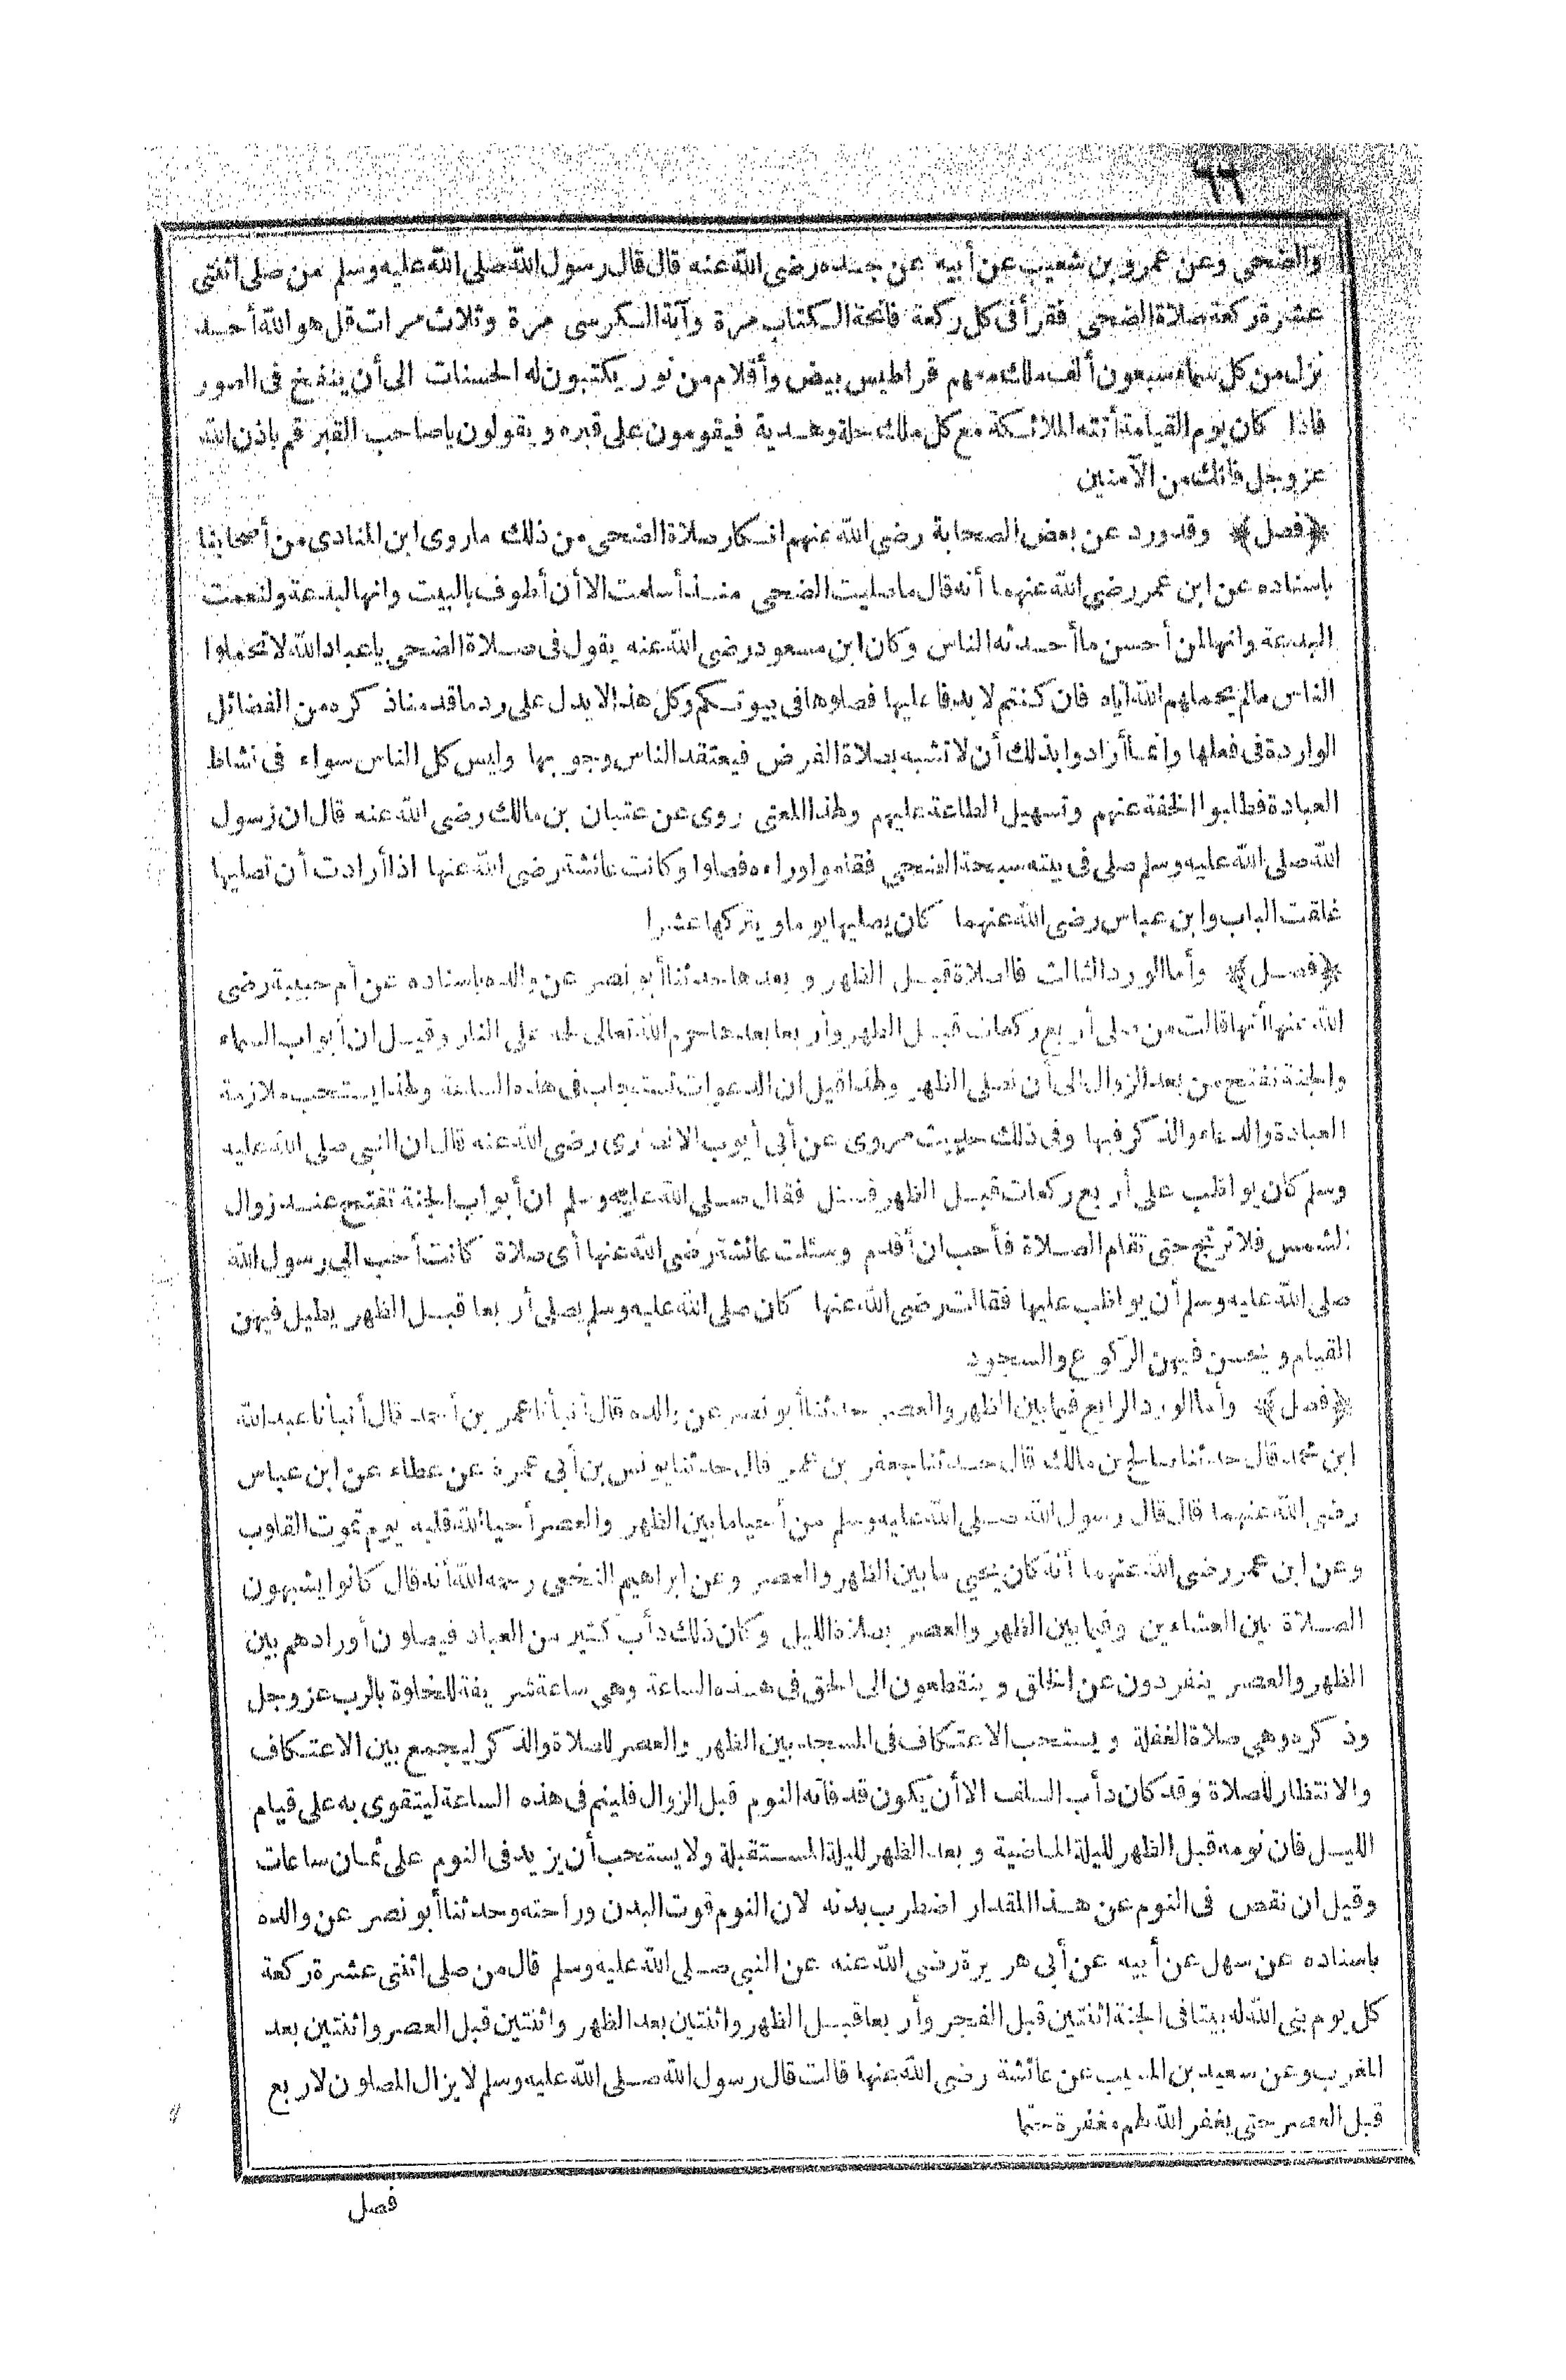 ٦٦
والضحى وعن عمرو بن شعيب عن أبيه عن جده رضى الله عنه قال قال رسول الله صلى الله عليه وسلم من صلى اثنتى
عشرة ركعة صلاة الضحى فقرأ فى كل ركعة فاتحة الكتاب مرة وآية الكرسى مرة وثلاث مرات قل هو الله أحد
نزل من كل سماء سبعون ألف ملك معهم قراطيس بيض وأقلام من نور يكتبون له الحسنات الى أن ينفخ فى الصور
فاذا كان يوم القيامة أتته الملائكة مع كل ملك حلة وهدية فيقومون على قبره ويقولون ياصاحب القبر قم باذن الله
عز وجل فانك من الآمنين
﴿فصل﴾ وقد ورد عن بعض الصحابة رضى الله عنهم انكار صلاة الضحى من ذلك ما روى ابن المنادى من أصحابنا
باسناده عن ابن عمر رضى الله عنهما أنه قال ما صليت الضحى منذ أسلمت الا أن أطوف بالبيت وانها لبدعة ولنعمت
البدعة وانها لمن أحسن ما أحدثه الناس وكان ابن مسعود رضى الله عنه يقول فى صلاة الضحى ياعباد الله لا تحملوا
الناس مالم يحملهم الله اياه فان كنتم لا بد فاعليها فصلوها فى بيوتكم وكل هذا لا يدل على رد ما قدمنا ذكره من الفضائل
الواردة فى فعلها وانما أرادوا بذلك أن لا تشبه بصلاة الفرض فيعتقد الناس وجوبها وليس كل الناس سواء فى نشاط
العبادة فطلبوا الخفة عنهم وتسهيل الطاعة عليهم ولهذا المعنى روى عن عتبان بن مالك رضى الله عنه قال ان رسول
الله صلى الله عليه وسلم صلى فى بيته سبحة الضحى فقاموا وراءه فصلوا وكانت عائشة رضى الله عنها اذا أرادت أن تصليها
غلقت الباب وابن عباس رضى الله عنهما كان يصليها يوما ويتركها عشرا
﴿فصل﴾ وأما الورد الثالث فالصلاة قبل الظهر وبعدها حدثنا أبو نصر عن والده باسناده عن أم حبيبة رضى
الله عنها أنها قالت من صلى أربع ركعات قبل الظهر وأربعا بعدها حرم الله تعالى لحمه على النار وقيل ان أبواب السماء
والجنة تفتح من بعد الزوال الى أن تصلى الظهر ولهذا قيل ان الدعوات تستجاب فى هذه الساعة ولهذا يستحب ملازمة
العبادة والدعاء والذكر فيها وفى ذلك حديث مروى عن أبى أيوب الانصارى رضى الله عنه قال ان النبى صلى الله عليه
وسلم كان يواظب على أربع ركعات قبل الظهر فسئل فقال صلى الله عليه وسلم ان أبواب الجنة تفتح عند زوال
الشمس فلا ترتج حتى تقام الصلاة فأحب ان أقدم وسئلت عائشة رضى الله عنها أى صلاة كانت أحب الى رسول الله
صلى الله عليه وسلم أن يواظب عليها فقالت رضى الله عنها كان صلى الله عليه وسلم يصلى أربعا قبل الظهر يطيل فيهن
القيام ويحسن فيهن الركوع والسجود
﴿فصل﴾ وأما الورد الرابع فيما بين الظهر والعصر حدثنا أبو نصر عن والده قال أنبأنا عمر بن أحمد قال أنبأنا عبد الله
ابن محمد قال حدثنا صالح بن مالك قال حدثنا جعفر بن عمر قال حدثنا يونس بن أبى عمرة عن عطاء عن ابن عباس
رضى الله عنهما قال قال رسول الله صلى الله عليه وسلم من أحيا ما بين الظهر والعصر أحيا الله قلبه يوم تموت القلوب
وعن ابن عمر رضى الله عنهما أنه كان يحيى ما بين الظهر والعصر وعن ابراهيم النخعى رحمه الله أنه قال كانوا يشبهون
الصلاة بين العشاءين وفيما بين الظهر والعصر بصلاة الليل وكان ذلك دأب كثير من العباد فيصلون أورادهم بين
الظهر والعصر ينفردون عن الخلق وينقطعون الى الحق فى هذه الساعة وهى ساعة شريفة للخلوة بالرب عز وجل
وذكره وهى صلاة الغفلة ويستحب الاعتكاف فى المسجد بين الظهر والعصر للصلاة والذكر ليجمع بين الاعتكاف
والانتظار للصلاة وقد كان دأب السلف الا أن يكون قد فاته النوم قبل الزوال فلينم فى هذه الساعة ليتقوى به على قيام
الليل فان نومه قبل الظهر لليلة الماضية وبعد الظهر لليلة المستقبلة ولا يستحب أن يزيد فى النوم على ثمان ساعات
وقيل ان نقص فى النوم عن هذا المقدار اضطرب بدنه لان النوم قوت البدن وراحته وحدثنا أبو نصر عن والده
باسناده عن سهل عن أبيه عن أبى هريرة رضى الله عنه عن النبى صلى الله عليه وسلم قال من صلى اثنتى عشرة ركعة
كل يوم بنى الله له بيتا فى الجنة اثنتين قبل الفجر وأربعا قبل الظهر واثنتين بعد الظهر واثنتين قبل العصر واثنتين بعد
المغرب وعن سعيد بن المسيب عن عائشة رضى الله عنها قالت قال رسول الله صلى الله عليه وسلم لا يزال المصلون لاربع
قبل العصر حتى يغفر الله لهم مغفرة حتما
فصل